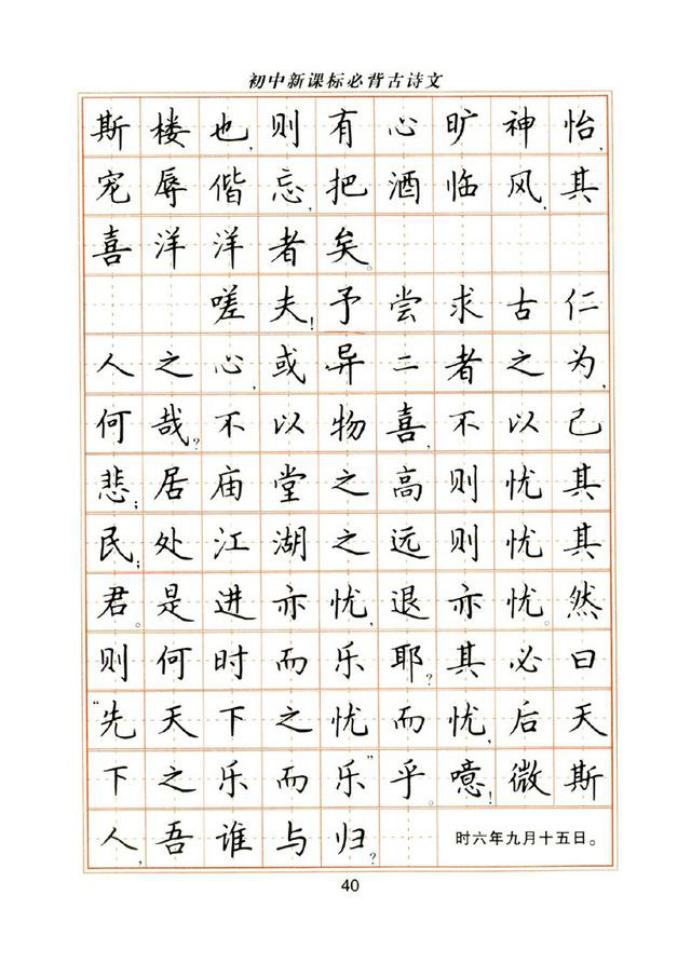 初中新课标必背古诗文
斯楼也,则有心旷神怡,
宠辱偕忘,把酒临风,其
喜洋洋者矣。
嗟夫!予尝求古仁
人之心,或异二者之为,
何哉?不以物喜,不以己
悲;居庙堂之高则忧其
民;处江湖之远则忧其
君。是进亦忧,退亦忧。然
则何时而乐耶?其必曰
“先天下之忧而忧,后天
下之乐而乐”乎。噫!微斯
人,吾谁与归?
时六年九月十五日。
40